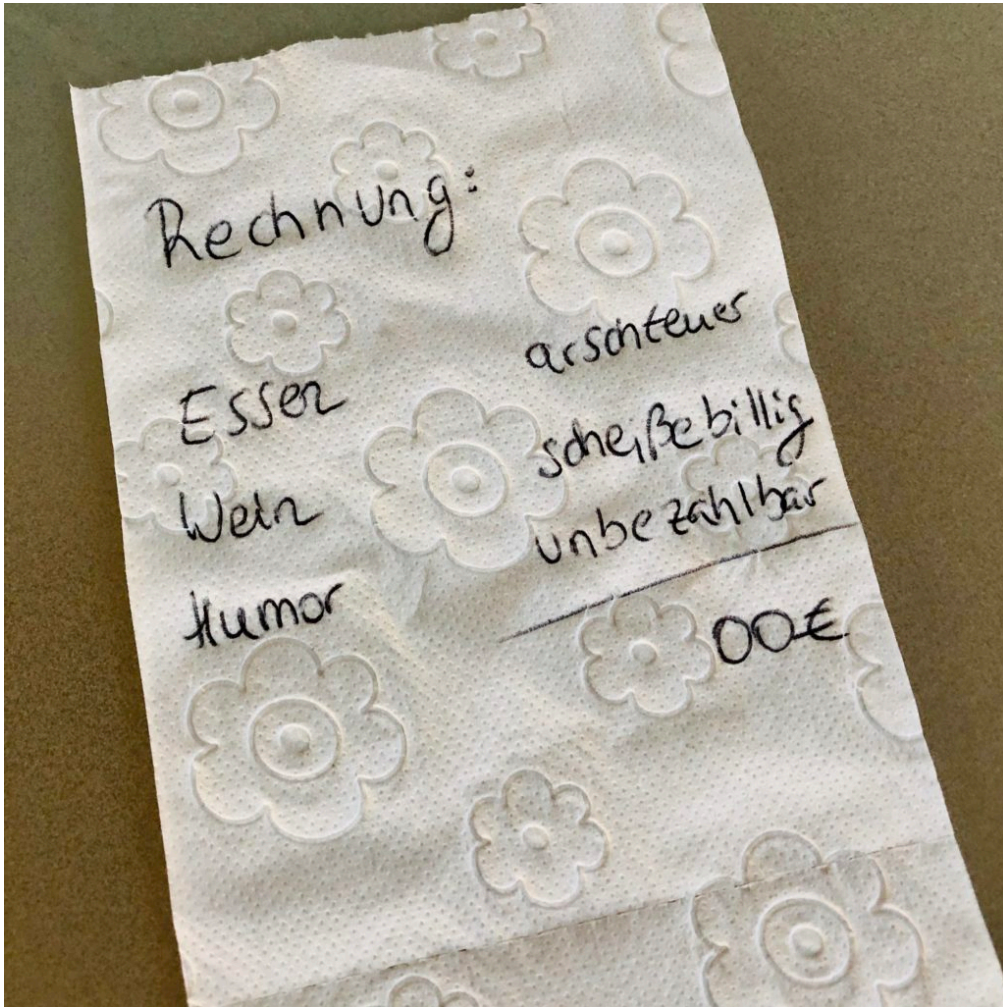 Rechnung:
Essen arschteuer
Wein scheißebillig
Humor unbezahlbar
00€